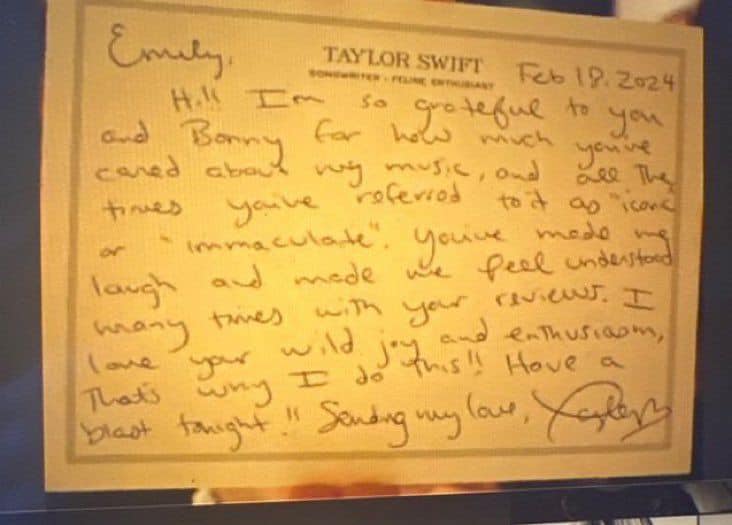 Emily,
TAYLOR SWIFT
SONGWRITER · FELINE ENTHUSIAST
Feb 18. 2024
Hi!! I'm so grateful to you
and Barry for how much you've
cared about my music, and all the
times you've referred to it as "iconic"
or "immaculate". You've made me
laugh and made me feel understood
many times with your reviews. I
love your wild joy and enthusiasm,
That's why I do this!! Have a
blast tonight!! Sending my love, Taylor